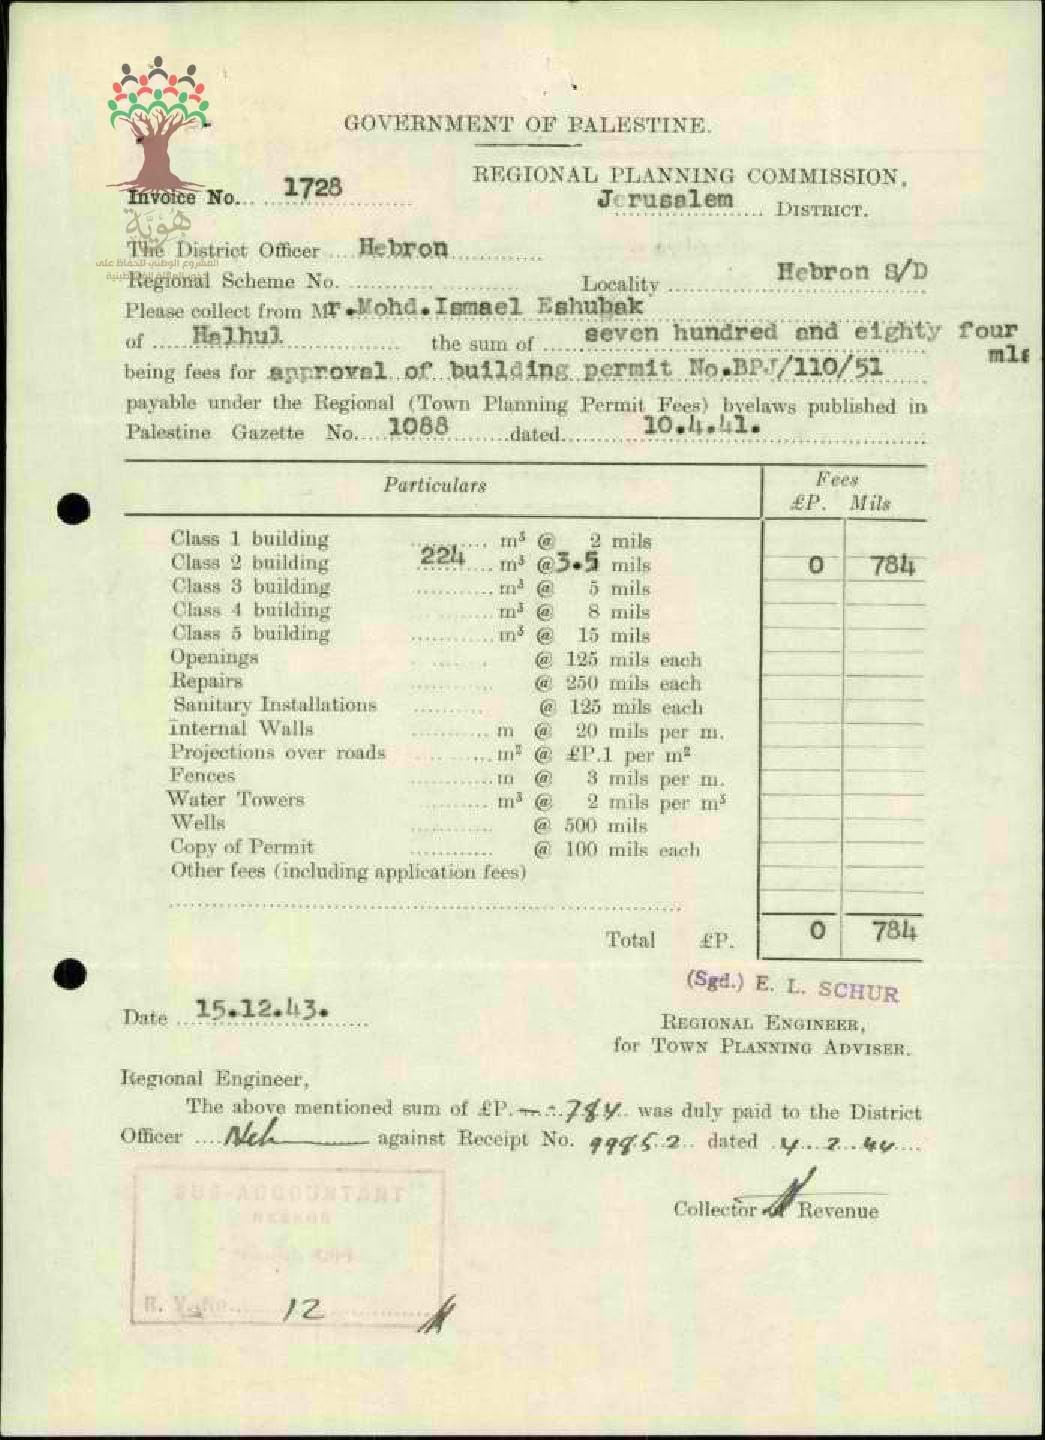 GOVERNMENT OF PALESTINE.
REGIONAL PLANNING COMMISSION.
Invoice No... 1728
Jerusalem DISTRICT.
هُوِيَّة
المشروع الوطني للحفاظ على
The District Officer .... Hebron
Regional Scheme No. Locality Hebron S/D
Please collect from Mr.Mohd.Ismael Eshubak
of .... Halhul the sum of seven hundred and eighty four
mls
being fees for approval of building permit No.BPJ/110/51
payable under the Regional (Town Planning Permit Fees) byelaws published in
Palestine Gazette No. 1088 dated 10.4.41.
Particulars Fees
£P. Mils
Class 1 building m³ @ 2 mils
Class 2 building 224 m³ @ 3.5 mils 0 784
Class 3 building m³ @ 5 mils
Class 4 building m³ @ 8 mils
Class 5 building m³ @ 15 mils
Openings @ 125 mils each
Repairs @ 250 mils each
Sanitary Installations @ 125 mils each
Internal Walls m @ 20 mils per m.
Projections over roads m² @ £P.1 per m²
Fences m @ 3 mils per m.
Water Towers m³ @ 2 mils per m³
Wells @ 500 mils
Copy of Permit @ 100 mils each
Other fees (including application fees)
Total £P. 0 784
(Sgd.) E. L. SCHUR
Date 15.12.43.
REGIONAL ENGINEER,
for TOWN PLANNING ADVISER.
Regional Engineer,
The above mentioned sum of £P. — 784 was duly paid to the District
Officer .... against Receipt No. 99852 dated 4.2.44
Collector Revenue
SUB-ACCOUNTANT
HEBRON
R. V. No. 12